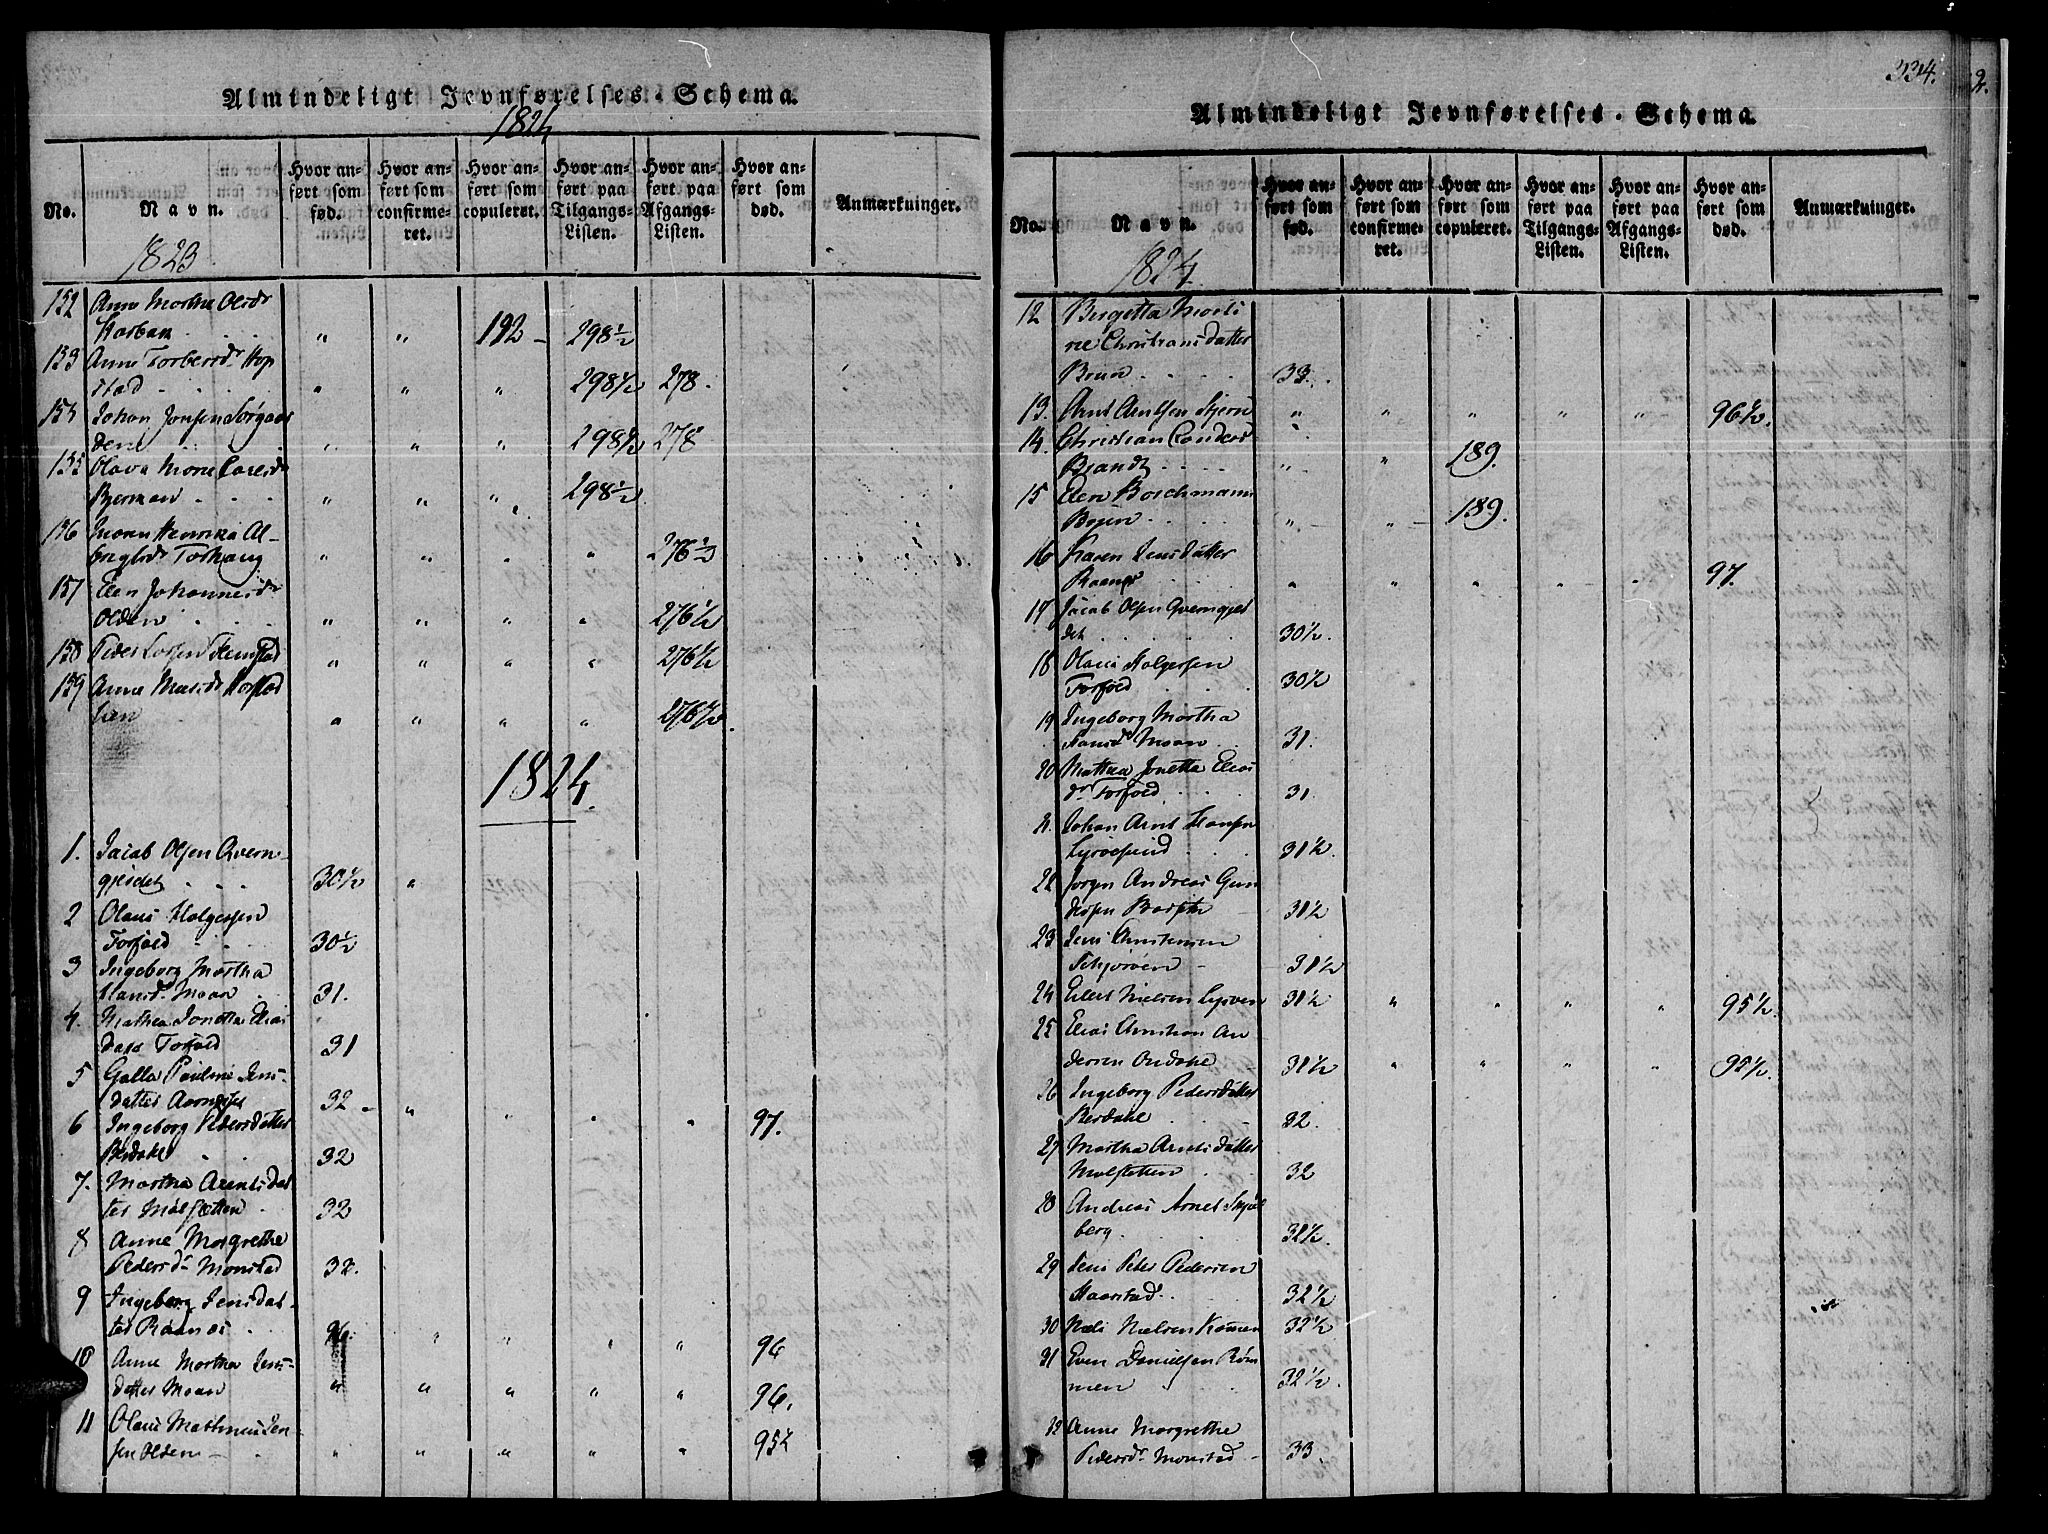 Almindeligt Jevnførelses-Schema.
1824
No.
Navn.
Hvor anført som fød.
Hvor anført som confirmeret.
Hvor anført som copuleret.
Hvor anført paa Tilgangs-Listen.
Hvor anført paa Afgangs-Listen.
Hvor anført som død.
Anmærkninger.
1823
152 Anne Martha Olsdr
" " 192 - 298½
153 Anne Torbersdr Hop
stad . . . " " " 298½ 278.
154 Johan Jonsen Sørgaar
den . . " " " 298½ 278
155 Olava
Bjerman . . . " " " 298½
156 Maren Henrika Al-
" " " " 276½
157 Elen Johannesdr
Olden . . . " " " " 276½
158 Peder Larsen
" " " " 276½
159 Anne
" " " " 276½.
1824.
1. Jacob Olsen Qvern-
gjerdet . . . 30½ "
2 Olaus Holgersen
Torfold . . . 30½
3 Ingeborg Martha
Hansd. Moan . 31.
4. Mathea Jonetta Elias
Datr Torfold 31
5 Golla Pauline Jens-
datter 32 - "
6 Ingeborg Pedersdatter
Berdahl . . 32 " " " 97.
7. Martha Arentsdat
ter Mølsletten . 32
8 Anne Margrethe
Pedersdr Monstad 32.
9 Ingeborg Jensdat-
ter Raanes . " " " " 96
10 Anne Martha Jens-
datter Moan " " " " " 96.
11 Olaus Mathias Jen-
sen Olden - . " " " " " 95½
334.
Almindeligt Jevnførelses-Schema.
No.
Navn.
Hvor anført som fød.
Hvor anført som confirmeret.
Hvor anført som copuleret.
Hvor anført paa Tilgangs-Listen.
Hvor anført paa Afgangs-Listen.
Hvor anført som død.
Anmærkninger.
1824.
12 Bergetta Marti
ne Christiansdatter
Brun . . . . 33.
13. Arnt Arntsen Stjern
" " " " " 96½.
14. Christian
Brandt . . . . " " 189.
15 Elen Boschmann
Bojen . . . . " " 189.
16 Karen Jensdatter
Raanes . . . " " " " " 97.
17 Jacob Olsen Qverngjer
det . . . . . 30½.
18 Olaus Holgersen
Torfold . . . 30½
19 Ingeborg Martha
Hansd. Moan . . 31.
20 Mathea Jonetta Elias
dr Torfold . . . 31.
21. Johan Arnt Hansen
Lyroesund . . . 31½.
22 Jørgen Andreas Gun
dersen 31½
23 Jens Christensen
31½
24 Eilert Nielsen 31½ " " " " 95½.
25 Elias Christian An
dersen 31½ " " " " 95½.
26 Ingeborg Pedersdatter
Berdahl . . . 32.
27 Martha Arntsdatter
Mølsletten . . 32
28 Andreas Arnet Skjæl
berg . . . . . 32½.
29 Jens Peter Pedersen
Haarstad . . . 32½
30 Niels Nielsen 32½
31 Even Danielsen Røm
men . . . 32½.
32 Anne Margrethe
Pedersdr Monstad - 33.